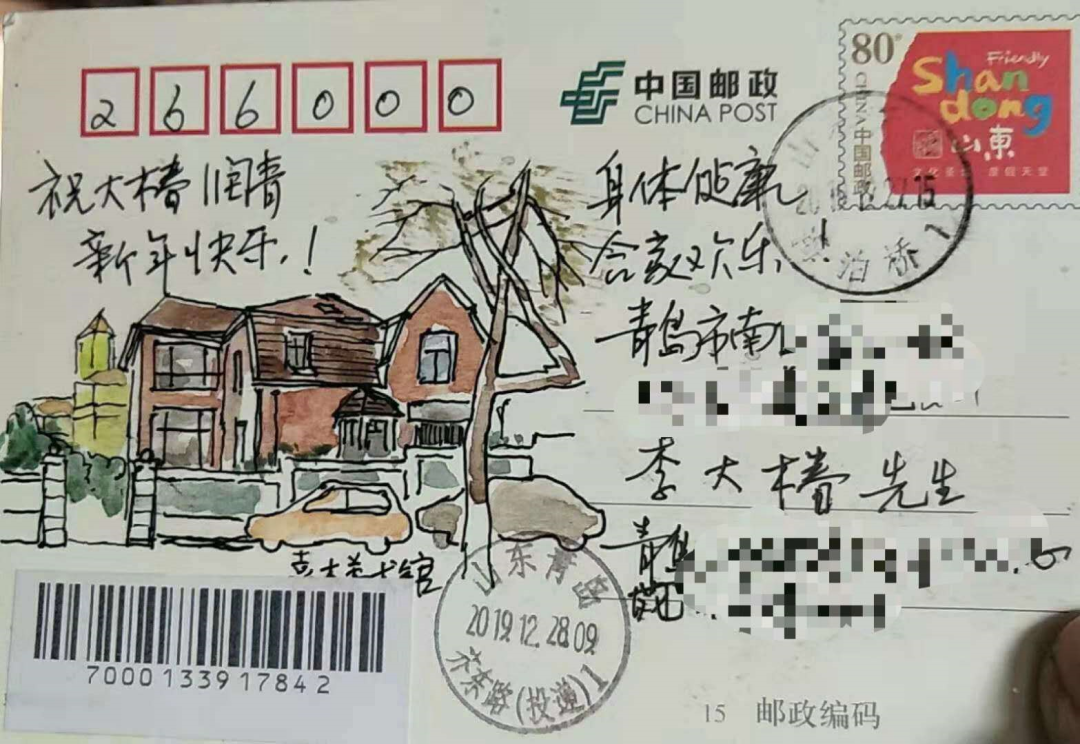 266000
中国邮政
CHINA POST
80
CHINA
中国邮政
Friendly
Shan
dong
山東
祝大椿润青
新年快乐！
身体健康
合家欢乐
青岛市南
李大椿先生
青岛
山东青岛
2019.12.28.09
(投递)1
泊桥1
7000133917842
15 邮政编码